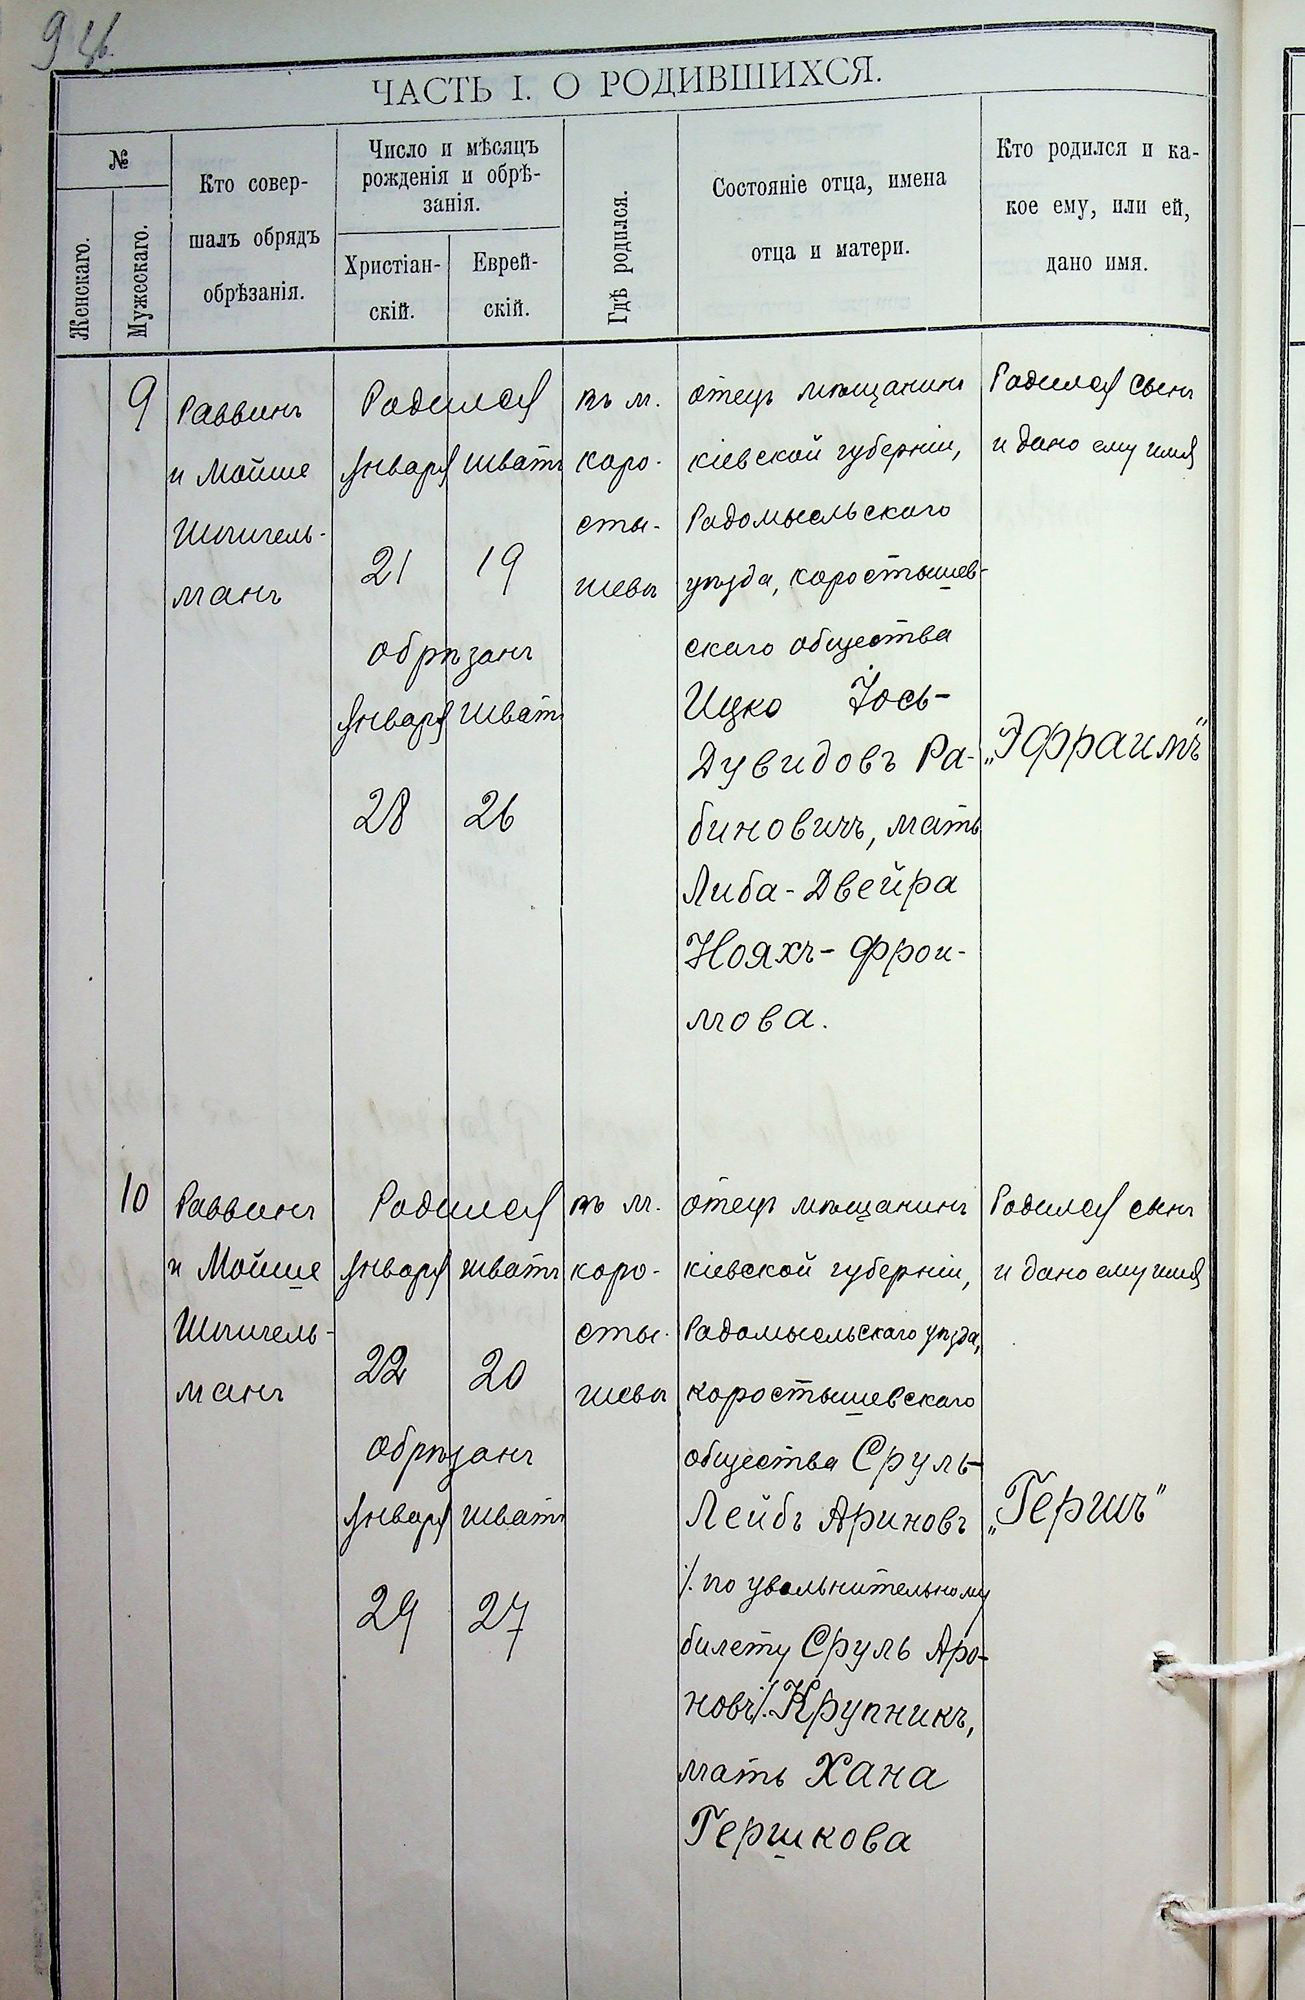 9 об.
ЧАСТЬ I. О РОДИВШИХСЯ.
№
Женскаго.
Мужескаго.
Кто совер-
шалъ обрядъ
обрѣзанія.
Число и мѣсяцъ
рожденія и обрѣ-
занія.
Христіан-
скій.
Еврей-
скій.
Гдѣ родился.
Состояніе отца, имена
отца и матери.
Кто родился и ка-
кое ему, или ей,
дано имя.
9
Раввинъ
и Мойше
Шпигель-
манъ
Родился
января шватъ
21 19
обрѣзанъ
января шватъ
28 26
въ м.
коро-
сты-
шевѣ
отецъ мѣщанинъ
кіевской губерніи,
Радомысльскаго
уѣзда, коростышев-
скаго общества
Ицко Іось-
Дувидовъ Ра-
биновичъ, мать
Либа-Двейра
Нояхъ-Фрои-
мова.
Родился сынъ
и дано ему имя
„Эфраимъ"
10
Раввинъ
и Мойше
Шпигель-
манъ
Родился
января шватъ
22 20
обрѣзанъ
января шватъ
29 27
въ м.
коро-
сты-
шевѣ
отецъ мѣщанинъ
кіевской губерніи,
Радомысльскаго уѣзда,
коростышевскаго
общества Сруль-
Лейбъ Ариновъ
/. по увольнительному
билету Сруль Аро-
новъ/. Крупникъ,
мать Хана
Гершкова
Родился сынъ
и дано ему имя
„Гершъ"